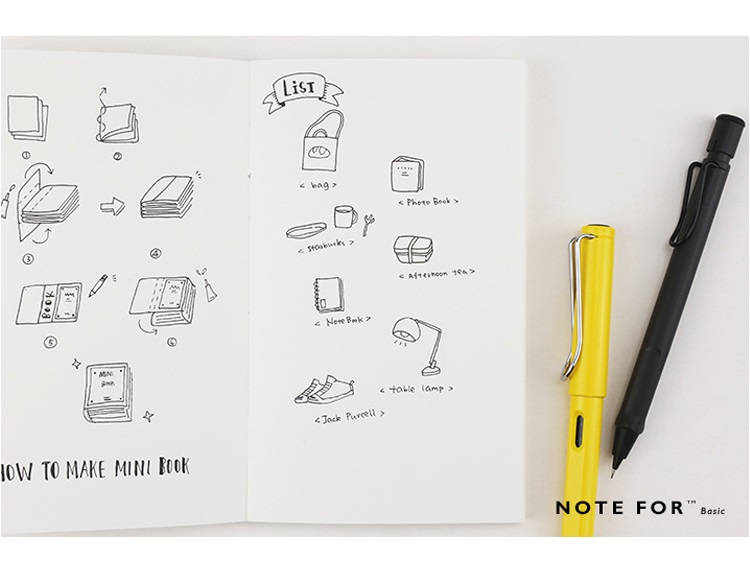 ①
②
③
④
BOOK
⑤
⑥
MINI
BOOK
HOW TO MAKE MINI BOOK
LIST
< bag >
< Photo Book >
< Starbucks >
< Afternoon tea >
< Note Book >
< table lamp >
< Jack Purcell >
NOTE FOR™ Basic